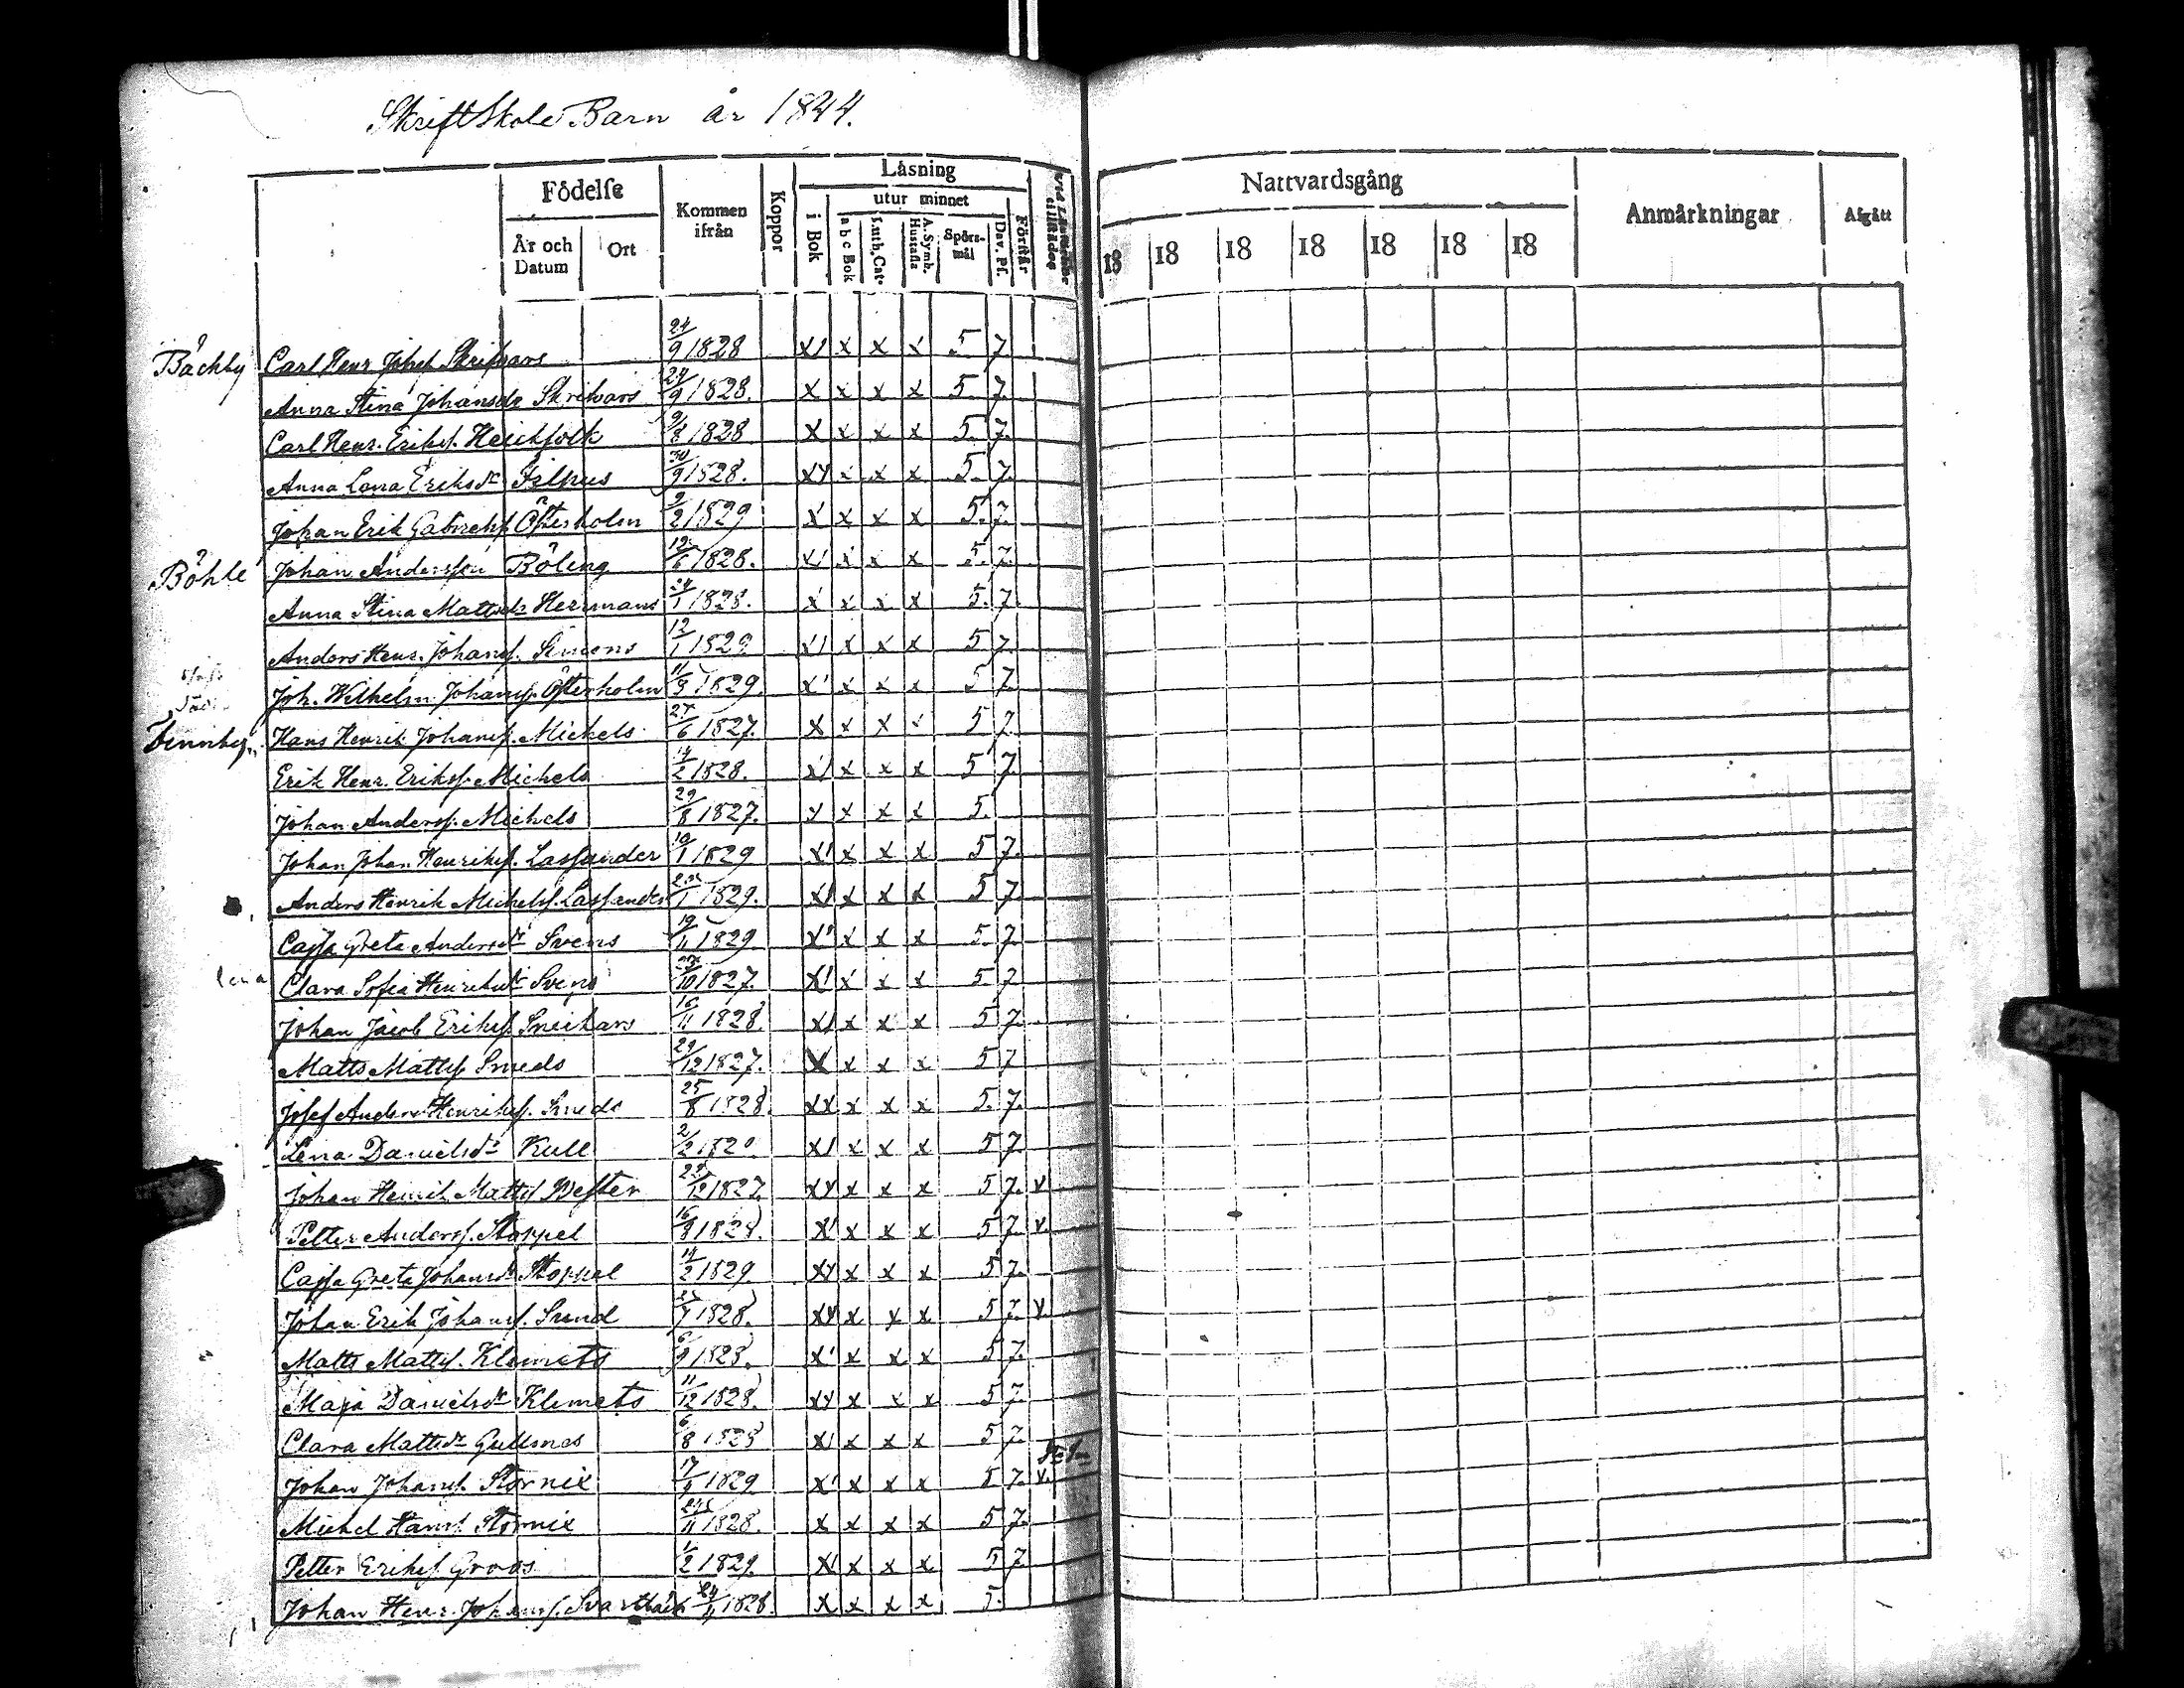 Skriftskole Barn år 1844.
Födelse
År och Datum
Ort
Kommen ifrån
Koppor
Läsning
utur minnet
i Bok
a b c Bok
Luth. Cat.
A. Symb. Hustafla
Spörsmål
Dav. Ps.
Förstår
Nattvardsgång
18 18 18 18 18 18 18
Anmärkningar
Afgått
Båckby Carl Henr. Johss. Skrifvars 24/9 1828 x x x x 5. 7
Anna Stina Johansdr Skrifvars 24/9 1828. x x x x 5. 7.
Carl Henr. Erikss. Heickfolk 9/8 1828 x x x x 5. 7.
Anna Lena Eriksdr Filpus 30/9 1828. xx x x x 5. 7.
Johan Erik Gabrielss. Österholm 2/2 1829 x x x x 5. 7.
Böhle Johan Andersson Böling 12/6 1828. x x x x 5. 7.
Anna Stina Mattsdr Hermans 24/1 1828. x x x x 5. 7.
Anders Henr. Johanss. Simons 12/1 1829 x x x x 5 7.
Joh. Wilhelm Johanss. Österholm 11/3 1829. x x x x 5 7.
Finnby Hans Henrik Johanss. Michels 27/6 1827. x x x x 5 7
Erik Henr. Erikss. Michels 14/2 1828. x x x x 5 7.
Johan Anderss. Michels 29/8 1827. x x x x 5.
Johan Johan Henrikss. Lassander 10/1 1829 x x x x 5 7.
Anders Henrik Michelss. Lassander 1829. x x x x 5 7.
Cajsa Greta Andersdr Svens 19/11 1829. x x x x 5. 7.
lena Clara Sofia Henriksdr Svens 10 1827. x x x x 5. 7
Johan Jacob Erikss. Sneikars 16/11 1828. x x x x 5 7.
Matts Mattss. Smeds 29/12 1827. x x x x 5 7
Josef Anders Henrikss. Smeds 25/8 1828. xx x x x 5. 7.
Lena Danielsdr Kull 2/2 x x x x 5 7.
Johan Henrik Mattss. Wester 12 1827. xx x x x 5 7. x
Petter Anderss. Stoppel 16/9 1828. x x x x 5 7. x.
Cajsa Greta Johansdr Stoppel 14/2 1829. xx x x x 5 7.
Johan Erik Johanss. Sund 1828. xx x x x 5 7. x
Matts Mattss. Klemets 6/9 1828. x x x x 5 7.
Maja Danielsdr Klemets 11/12 1828. xx x x x 5 7.
Clara Mattsdr Gullmes 6/8 1828 x x x x 5 7.
Johan Johanss. Stornix 17 1829 x x x x 5 7. x.
Michel Hanss. Stornix 11 1828. x x x x 5 7.
Petter Erikss. Groos 1/2 1829. x x x x 5 7.
Johan Henr. Johanss. Svartbäck 24/4 1828. x x x x 5.